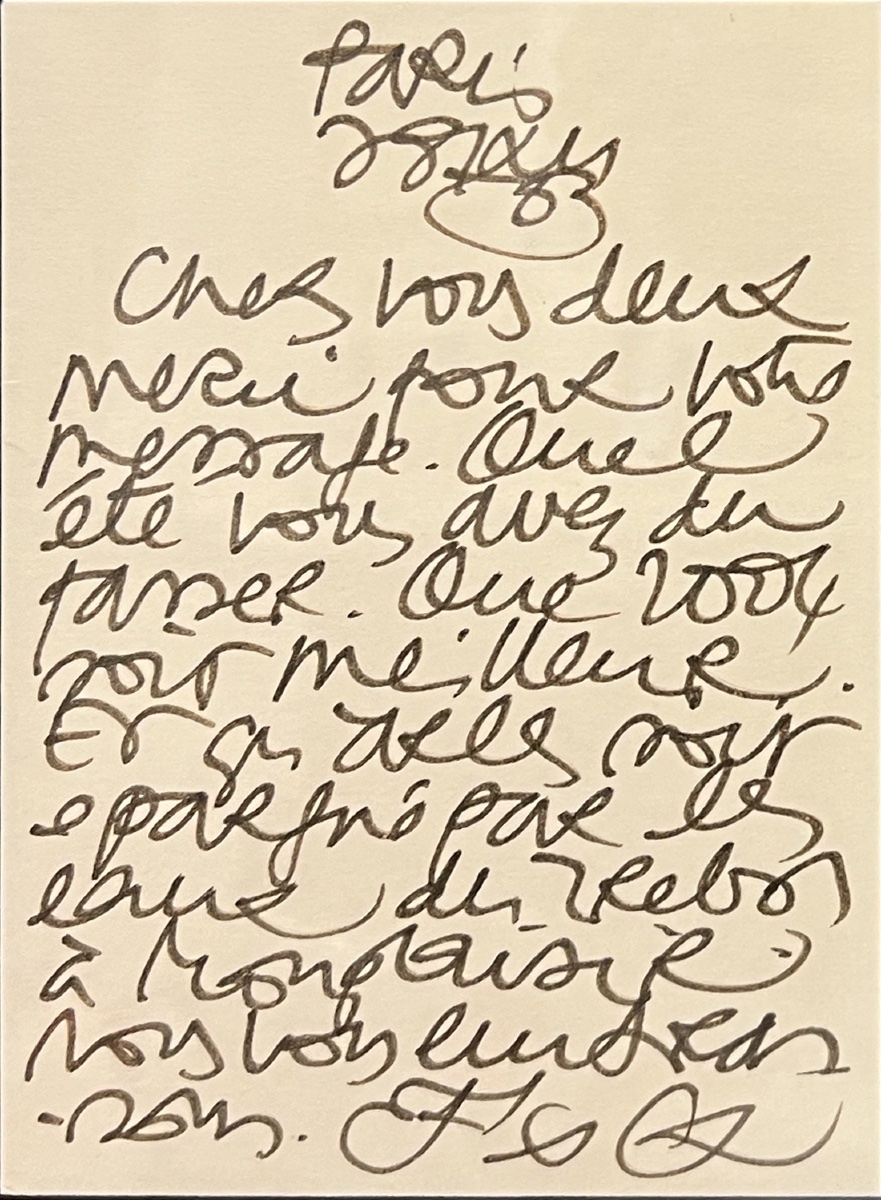 Paris
Chers vous deux
merci pour votre
message. Quel
été vous avez du
passer. Que 2004
soit meilleur.
Et qu'Arles soit
epargné par les
eaux du
à
vous vous embras
-sons. F